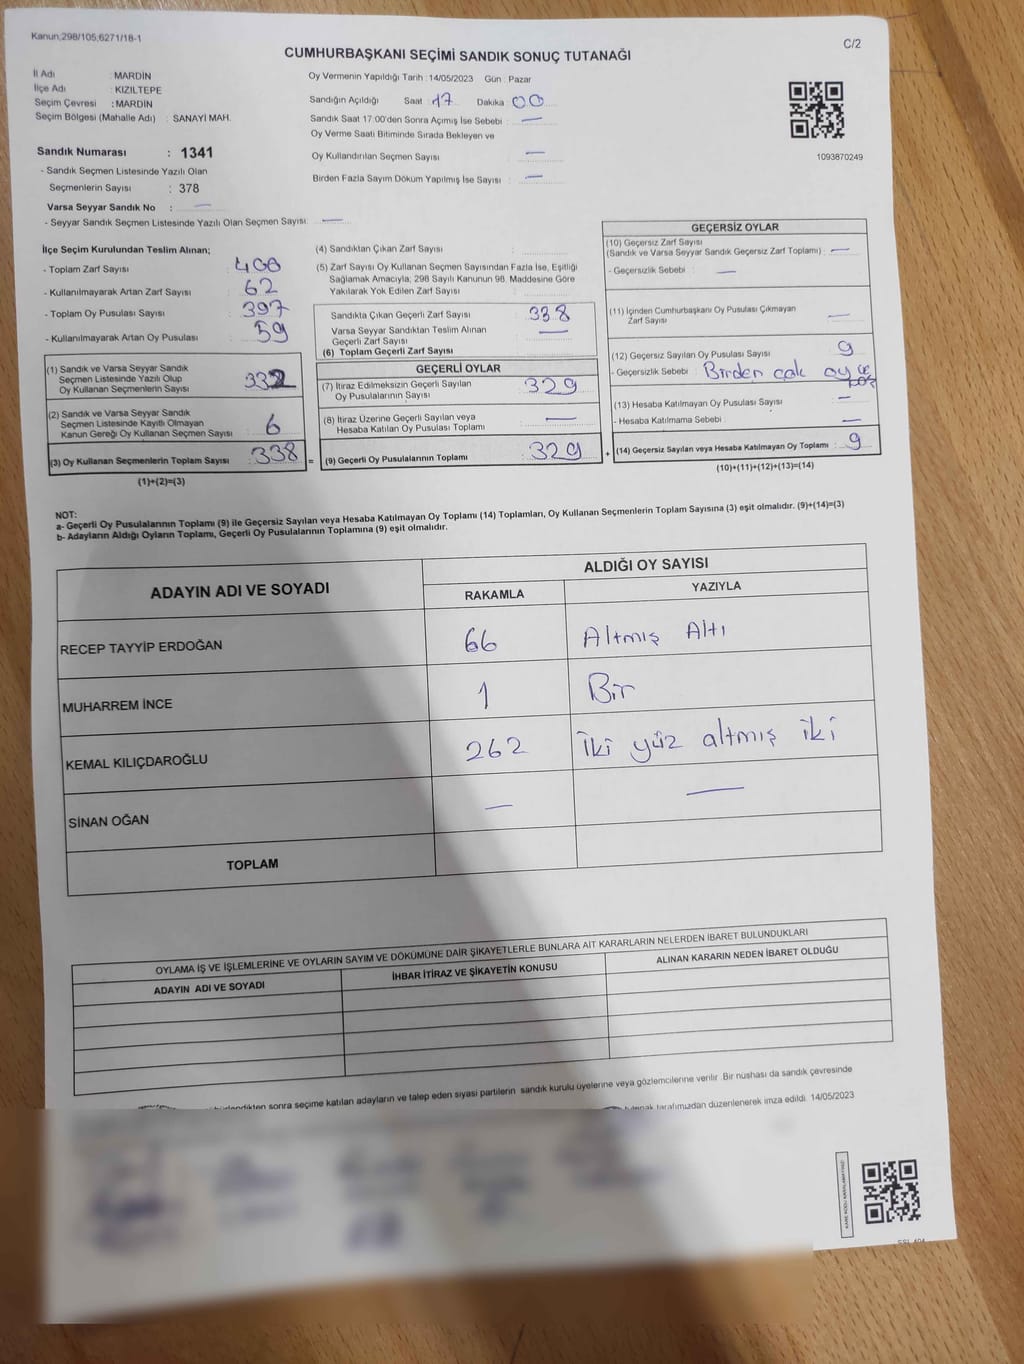 Kanun;298/105;6271/18-1
C/2
CUMHURBAŞKANI SEÇİMİ SANDIK SONUÇ TUTANAĞI
İl Adı : MARDİN
İlçe Adı : KIZILTEPE
Seçim Çevresi : MARDİN
Seçim Bölgesi (Mahalle Adı) : SANAYİ MAH.
Sandık Numarası : 1341
- Sandık Seçmen Listesinde Yazılı Olan
Seçmenlerin Sayısı : 378
Varsa Seyyar Sandık No : —
- Seyyar Sandık Seçmen Listesinde Yazılı Olan Seçmen Sayısı: —
Oy Vermenin Yapıldığı Tarih : 14/05/2023 Gün : Pazar
Sandığın Açıldığı Saat : 17 Dakika : 00
Sandık Saat 17:00'den Sonra Açılmış İse Sebebi : —
Oy Verme Saati Bitiminde Sırada Bekleyen ve
Oy Kullandırılan Seçmen Sayısı —
Birden Fazla Sayım Döküm Yapılmış İse Sayısı : —
1093870249
İlçe Seçim Kurulundan Teslim Alınan;
- Toplam Zarf Sayısı : 400
- Kullanılmayarak Artan Zarf Sayısı : 62
- Toplam Oy Pusulası Sayısı : 397
- Kullanılmayarak Artan Oy Pusulası : 59
(1) Sandık ve Varsa Seyyar Sandık
Seçmen Listesinde Yazılı Olup
Oy Kullanan Seçmenlerin Sayısı : 332
(2) Sandık ve Varsa Seyyar Sandık
Seçmen Listesinde Kayıtlı Olmayan
Kanun Gereği Oy Kullanan Seçmen Sayısı : 6
(3) Oy Kullanan Seçmenlerin Toplam Sayısı : 338
(1)+(2)=(3)
(4) Sandıktan Çıkan Zarf Sayısı :
(5) Zarf Sayısı Oy Kullanan Seçmen Sayısından Fazla İse, Eşitliği
Sağlamak Amacıyla; 298 Sayılı Kanunun 98. Maddesine Göre
Yakılarak Yok Edilen Zarf Sayısı :
Sandıkta Çıkan Geçerli Zarf Sayısı : 338
Varsa Seyyar Sandıktan Teslim Alınan
Geçerli Zarf Sayısı : —
(6) Toplam Geçerli Zarf Sayısı :
GEÇERLİ OYLAR
(7) İtiraz Edilmeksizin Geçerli Sayılan
Oy Pusulasının Sayısı : 329
(8) İtiraz Üzerine Geçerli Sayılan veya
Hesaba Katılan Oy Pusulası Toplamı : —
= (9) Geçerli Oy Pusulalarının Toplamı : 329
GEÇERSİZ OYLAR
(10) Geçersiz Zarf Sayısı
(Sandık ve Varsa Seyyar Sandık Geçersiz Zarf Toplamı) : —
- Geçersizlik Sebebi : —
(11) İçinden Cumhurbaşkanı Oy Pusulası Çıkmayan
Zarf Sayısı : —
(12) Geçersiz Sayılan Oy Pusulası Sayısı : 9
- Geçersizlik Sebebi : Birden çok oy
(13) Hesaba Katılmayan Oy Pusulası Sayısı : —
- Hesaba Katılmama Sebebi : —
+ (14) Geçersiz Sayılan veya Hesaba Katılmayan Oy Toplamı : 9
(10)+(11)+(12)+(13)=(14)
NOT:
a- Geçerli Oy Pusulalarının Toplamı (9) ile Geçersiz Sayılan veya Hesaba Katılmayan Oy Toplamı (14) Toplamları, Oy Kullanan Seçmenlerin Toplam Sayısına (3) eşit olmalıdır. (9)+(14)=(3)
b- Adayların Aldığı Oyların Toplamı, Geçerli Oy Pusulalarının Toplamına (9) eşit olmalıdır.
ADAYIN ADI VE SOYADI
ALDIĞI OY SAYISI
RAKAMLA YAZIYLA
RECEP TAYYİP ERDOĞAN 66 Altmış Altı
MUHARREM İNCE 1 Bir
KEMAL KILIÇDAROĞLU 262 İki yüz altmış iki
SİNAN OĞAN — —
TOPLAM
OYLAMA İŞ VE İŞLEMLERİNE VE OYLARIN SAYIM VE DÖKÜMÜNE DAİR ŞİKAYETLERLE BUNLARA AİT KARARLARIN NELERDEN İBARET BULUNDUKLARI
ADAYIN ADI VE SOYADI İHBAR İTİRAZ VE ŞİKAYETİN KONUSU ALINAN KARARIN NEDEN İBARET OLDUĞU
sonra seçime katılan adayların ve talep eden siyasi partilerin sandık kurulu üyelerine veya gözlemcilerine verilir .Bir nüshası da sandık çevresinde
tutanak tarafımızdan düzenlenerek imza edildi. 14/05/2023
KARE KODU KARALAMAYINIZ!